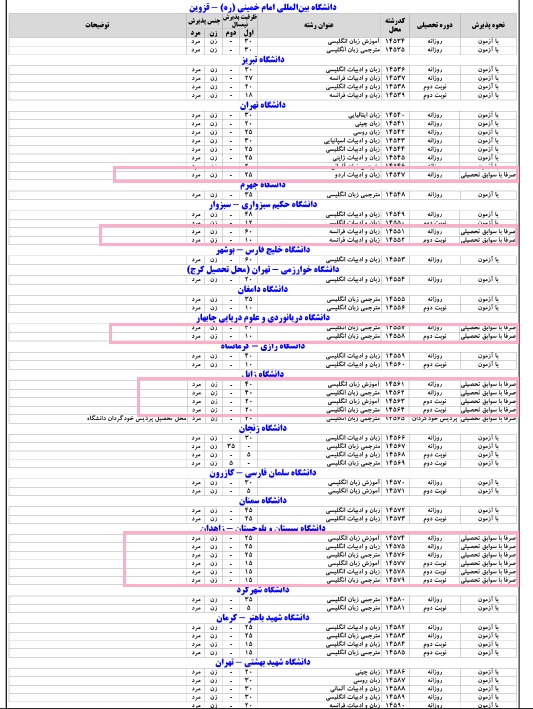 دانشگاه بین‌المللی امام خمینی (ره) – قزوین
نحوه پذیرش دوره تحصیلی کدرشته محل عنوان رشته ظرفیت پذیرش نیمسال اول دوم جنس پذیرش زن مرد توضیحات
با آزمون روزانه ۱۴۵۳۴ آموزش زبان انگلیسی ۳۰ - زن مرد
با آزمون روزانه ۱۴۵۳۵ مترجمی زبان انگلیسی ۳۰ - زن مرد
دانشگاه تبریز
با آزمون روزانه ۱۴۵۳۶ زبان و ادبیات انگلیسی ۳۰ - زن مرد
با آزمون روزانه ۱۴۵۳۷ زبان و ادبیات فرانسه ۲۷ - زن مرد
با آزمون نوبت دوم ۱۴۵۳۸ زبان و ادبیات انگلیسی ۲۰ - زن مرد
با آزمون نوبت دوم ۱۴۵۳۹ زبان و ادبیات فرانسه ۱۸ - زن مرد
دانشگاه تهران
با آزمون روزانه ۱۴۵۴۰ زبان ایتالیایی ۳۰ - زن مرد
با آزمون روزانه ۱۴۵۴۱ زبان چینی ۲۰ - زن مرد
با آزمون روزانه ۱۴۵۴۲ زبان روسی ۲۵ - زن مرد
با آزمون روزانه ۱۴۵۴۳ زبان و ادبیات اسپانیایی ۳۰ - زن مرد
با آزمون روزانه ۱۴۵۴۴ زبان و ادبیات انگلیسی ۲۵ - زن مرد
با آزمون روزانه ۱۴۵۴۵ زبان و ادبیات ژاپنی ۲۵ - زن مرد
صرفا با سوابق تحصیلی روزانه ۱۴۵۴۷ زبان و ادبیات اردو ۲۵ - زن مرد
دانشگاه جهرم
با آزمون روزانه ۱۴۵۴۸ مترجمی زبان انگلیسی ۳۵ - زن مرد
دانشگاه حکیم سبزواری – سبزوار
با آزمون روزانه ۱۴۵۴۹ زبان و ادبیات انگلیسی ۴۸ - زن مرد
با آزمون نوبت دوم ۱۴۵۵۰ زبان و ادبیات انگلیسی ۱۲ - زن مرد
صرفا با سوابق تحصیلی روزانه ۱۴۵۵۱ زبان و ادبیات فرانسه ۶۰ - زن مرد
صرفا با سوابق تحصیلی نوبت دوم ۱۴۵۵۲ زبان و ادبیات فرانسه ۱۰ - زن مرد
دانشگاه خلیج فارس – بوشهر
با آزمون روزانه ۱۴۵۵۳ زبان و ادبیات انگلیسی ۶۰ - زن مرد
دانشگاه خوارزمی – تهران (محل تحصیل کرج)
با آزمون روزانه ۱۴۵۵۴ زبان و ادبیات انگلیسی ۲۰ - زن مرد
دانشگاه دامغان
با آزمون روزانه ۱۴۵۵۵ مترجمی زبان انگلیسی ۳۵ - زن مرد
با آزمون نوبت دوم ۱۴۵۵۶ مترجمی زبان انگلیسی ۱۰ - زن مرد
دانشگاه دریانوردی و علوم دریایی چابهار
صرفا با سوابق تحصیلی روزانه ۱۴۵۵۷ مترجمی زبان انگلیسی ۳۰ - زن مرد
صرفا با سوابق تحصیلی نوبت دوم ۱۴۵۵۸ مترجمی زبان انگلیسی ۱۰ - زن مرد
دانشگاه رازی – کرمانشاه
با آزمون روزانه ۱۴۵۵۹ زبان و ادبیات انگلیسی ۴۰ - زن مرد
با آزمون نوبت دوم ۱۴۵۶۰ زبان و ادبیات انگلیسی ۱۰ - زن مرد
دانشگاه زابل
صرفا با سوابق تحصیلی روزانه ۱۴۵۶۱ آموزش زبان انگلیسی ۴۰ - زن مرد
صرفا با سوابق تحصیلی روزانه ۱۴۵۶۲ مترجمی زبان انگلیسی ۴۰ - زن مرد
صرفا با سوابق تحصیلی نوبت دوم ۱۴۵۶۳ آموزش زبان انگلیسی ۲۰ - زن مرد
صرفا با سوابق تحصیلی نوبت دوم ۱۴۵۶۴ مترجمی زبان انگلیسی ۲۰ - زن مرد
صرفا با سوابق تحصیلی پردیس خودگردان ۱۴۵۶۵ مترجمی زبان انگلیسی ۲۰ - زن مرد محل تحصیل پردیس خودگردان دانشگاه
دانشگاه زنجان
با آزمون روزانه ۱۴۵۶۶ زبان و ادبیات انگلیسی ۳۰ - زن مرد
با آزمون روزانه ۱۴۵۶۷ مترجمی زبان انگلیسی - ۳۵ زن مرد
با آزمون نوبت دوم ۱۴۵۶۸ زبان و ادبیات انگلیسی ۵ - زن مرد
با آزمون نوبت دوم ۱۴۵۶۹ مترجمی زبان انگلیسی - ۵ زن مرد
دانشگاه سلمان فارسی – کازرون
با آزمون روزانه ۱۴۵۷۰ آموزش زبان انگلیسی ۳۰ - زن مرد
با آزمون نوبت دوم ۱۴۵۷۱ آموزش زبان انگلیسی ۵ - زن مرد
دانشگاه سمنان
با آزمون روزانه ۱۴۵۷۲ مترجمی زبان انگلیسی ۴۵ - زن مرد
با آزمون نوبت دوم ۱۴۵۷۳ مترجمی زبان انگلیسی ۲۵ - زن مرد
دانشگاه سیستان و بلوچستان – زاهدان
صرفا با سوابق تحصیلی روزانه ۱۴۵۷۴ آموزش زبان انگلیسی ۲۵ - زن مرد
صرفا با سوابق تحصیلی روزانه ۱۴۵۷۵ زبان و ادبیات انگلیسی ۲۵ - زن مرد
صرفا با سوابق تحصیلی روزانه ۱۴۵۷۶ مترجمی زبان انگلیسی ۲۵ - زن مرد
صرفا با سوابق تحصیلی نوبت دوم ۱۴۵۷۷ آموزش زبان انگلیسی ۱۵ - زن مرد
صرفا با سوابق تحصیلی نوبت دوم ۱۴۵۷۸ زبان و ادبیات انگلیسی ۱۵ - زن مرد
صرفا با سوابق تحصیلی نوبت دوم ۱۴۵۷۹ مترجمی زبان انگلیسی ۱۵ - زن مرد
دانشگاه شهرکرد
با آزمون روزانه ۱۴۵۸۰ مترجمی زبان انگلیسی ۳۵ - زن مرد
با آزمون نوبت دوم ۱۴۵۸۱ مترجمی زبان انگلیسی ۵ - زن مرد
دانشگاه شهید باهنر – کرمان
با آزمون روزانه ۱۴۵۸۲ زبان و ادبیات انگلیسی ۲۵ - زن مرد
با آزمون روزانه ۱۴۵۸۳ مترجمی زبان انگلیسی ۲۵ - زن مرد
با آزمون نوبت دوم ۱۴۵۸۴ زبان و ادبیات انگلیسی ۱۵ - زن مرد
با آزمون نوبت دوم ۱۴۵۸۵ مترجمی زبان انگلیسی ۱۵ - زن مرد
دانشگاه شهید بهشتی – تهران
با آزمون روزانه ۱۴۵۸۶ زبان چینی ۲۰ - زن مرد
با آزمون روزانه ۱۴۵۸۷ زبان روسی ۳۰ - زن مرد
با آزمون روزانه ۱۴۵۸۸ زبان و ادبیات آلمانی ۳۰ - زن مرد
با آزمون روزانه ۱۴۵۸۹ زبان و ادبیات انگلیسی ۳۰ - زن مرد
با آزمون روزانه ۱۴۵۹۰ زبان و ادبیات فرانسه ۲۰ - زن مرد